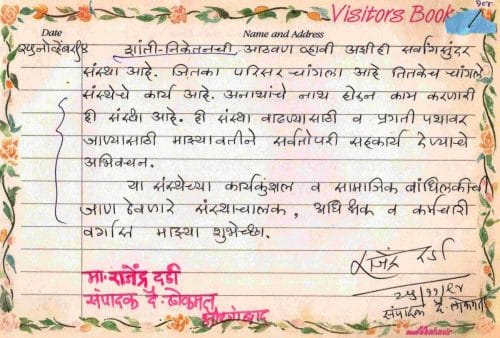 Visitors Book
Date
Name and Address
शांती-निकेतनची आठवण व्हावी अशीही सर्वांगसुंदर
संस्था आहे. जितका परिसर चांगला आहे तितकेच चांगले
संस्थेचे कार्य आहे. अनाथांचे नाथ होऊन काम करणारी
ही संस्था आहे. ही संस्था वाढण्यासाठी व प्रगती पथावर
जाण्यासाठी माझ्यावतीने सर्वतोपरी सहकार्य देण्याचे
अभिवचन.
या संस्थेच्या कार्यकुंशल व सामाजिक बांधिलकीची
जाण ठेवणारे संस्थाचालक, अधिक्षक व कर्मचारी
वर्गास माझ्या शुभेच्छा.
राजेंद्र दर्डा
२५/११/९४
संपादक दै. लोकमत
मा. राजेंद्र दर्डी
संपादक दै. लोकमत
औरंगाबाद